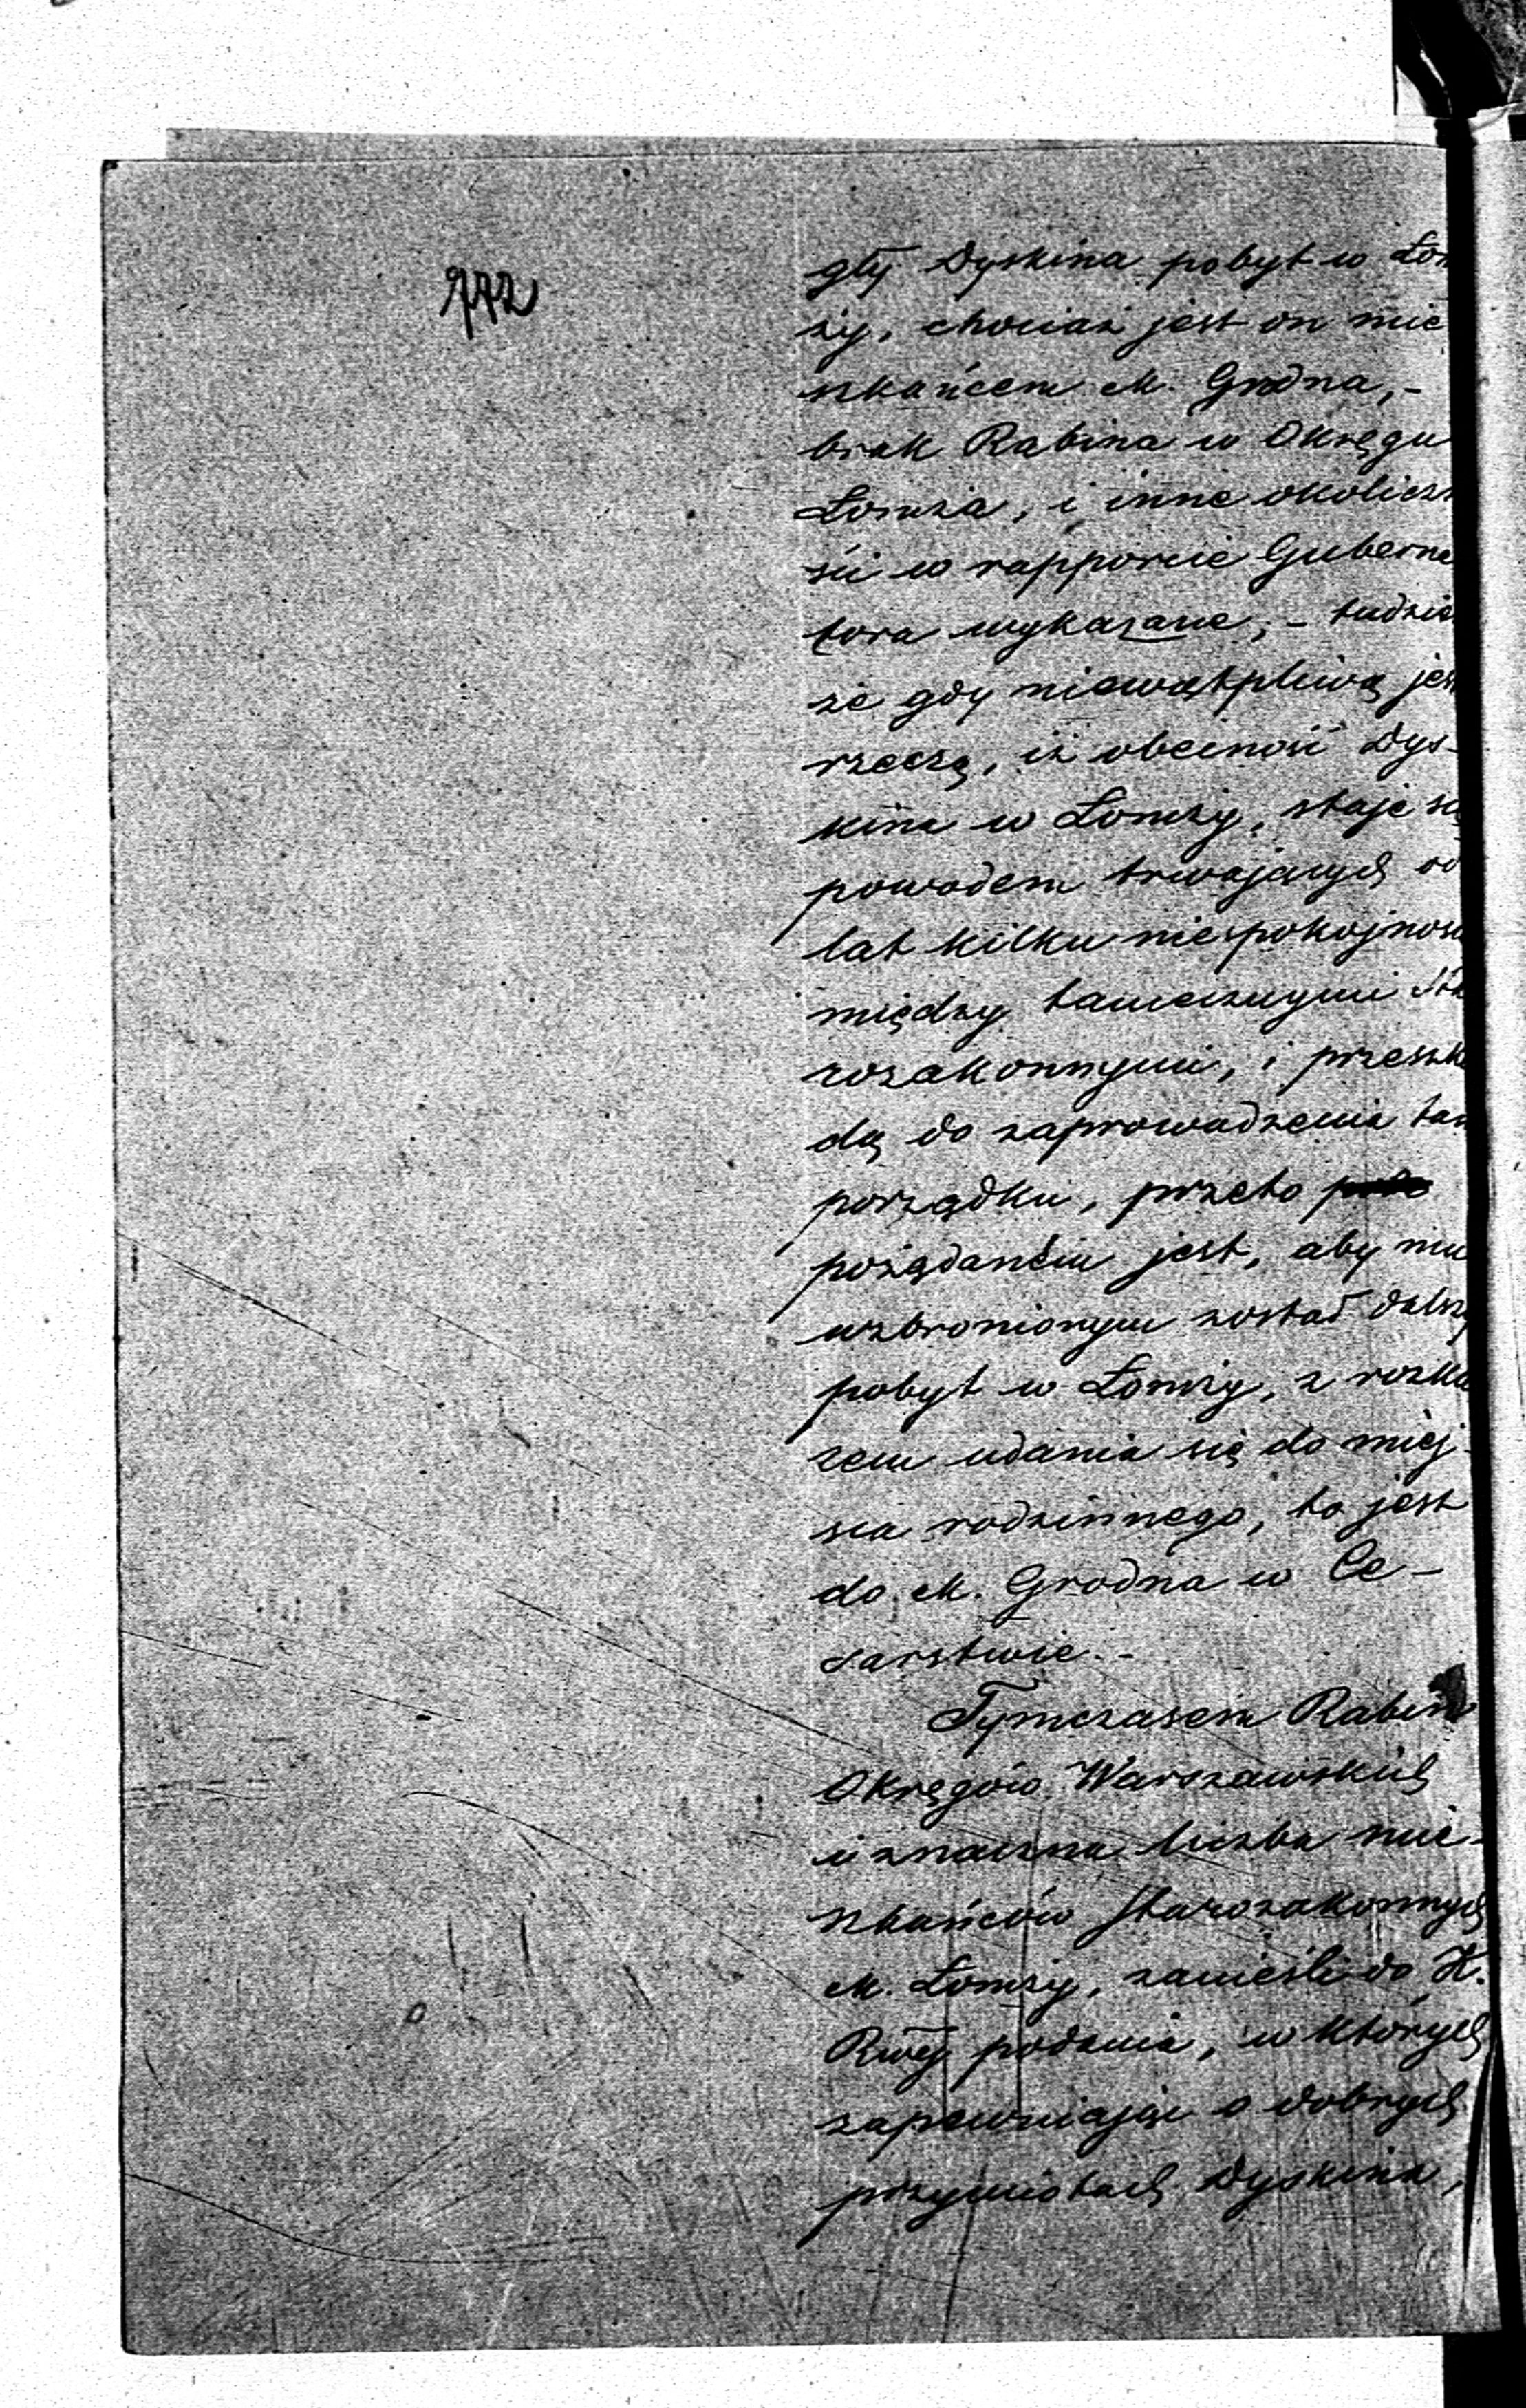 772
gły Dyskina pobyt w Łom
ży, chociaż jest on mie
szkańcem M. Grodna, -
brak Rabina w Okręgu
Łomża, i inne okoliczn
ści w rapporcie Guberna
tora wykazane; - tudzież
że gdy niewątpliwą jest
rzeczą, iż obecność Dys-
kina w Łomży, staje się
powodem trwających od
lat kilku niespokojnoś
między tamecznymi Sta
rozakonnymi, i przeszko
dą do zaprowadzenia tam
porządku, przeto
pożądaném jest, aby mu
wzbronionym został dalszy
pobyt w Łomży, z rozka
zem udania się do miej-
sca rodzinnego, to jest
do M. Grodna w Ce-
sarstwie. -
Tymczasem Rabin
Okręgów Warszawskich
i znaczna liczba mie-
szkańców Starozakonnych
M. Łomży, zanieśli do K.
Rwéj podania, w których
zapewniając o dobrych
przymiotach Dyskina,